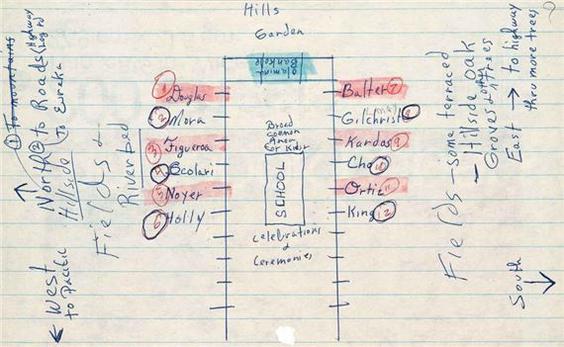 Hills
Garden
Olamina
Bankole
1 Douglas
2 Mora
3 Figueroa
4 Scolari
5 Noyer
6 Holly
Balter 7
Gilchrist 8
Kardos 9
Cho 10
Ortiz 11
King 12
Broad
common
Area
for Kids
SCHOOL
Celebrations
&
Ceremonies
① To mountains
North ② to Roads
to Eureka
Hillside
Fields &
Riverbed
West
to Pacific
Fields - some terraced
- Hillside oak
Groves
trees
East → to highway
thru more trees
South